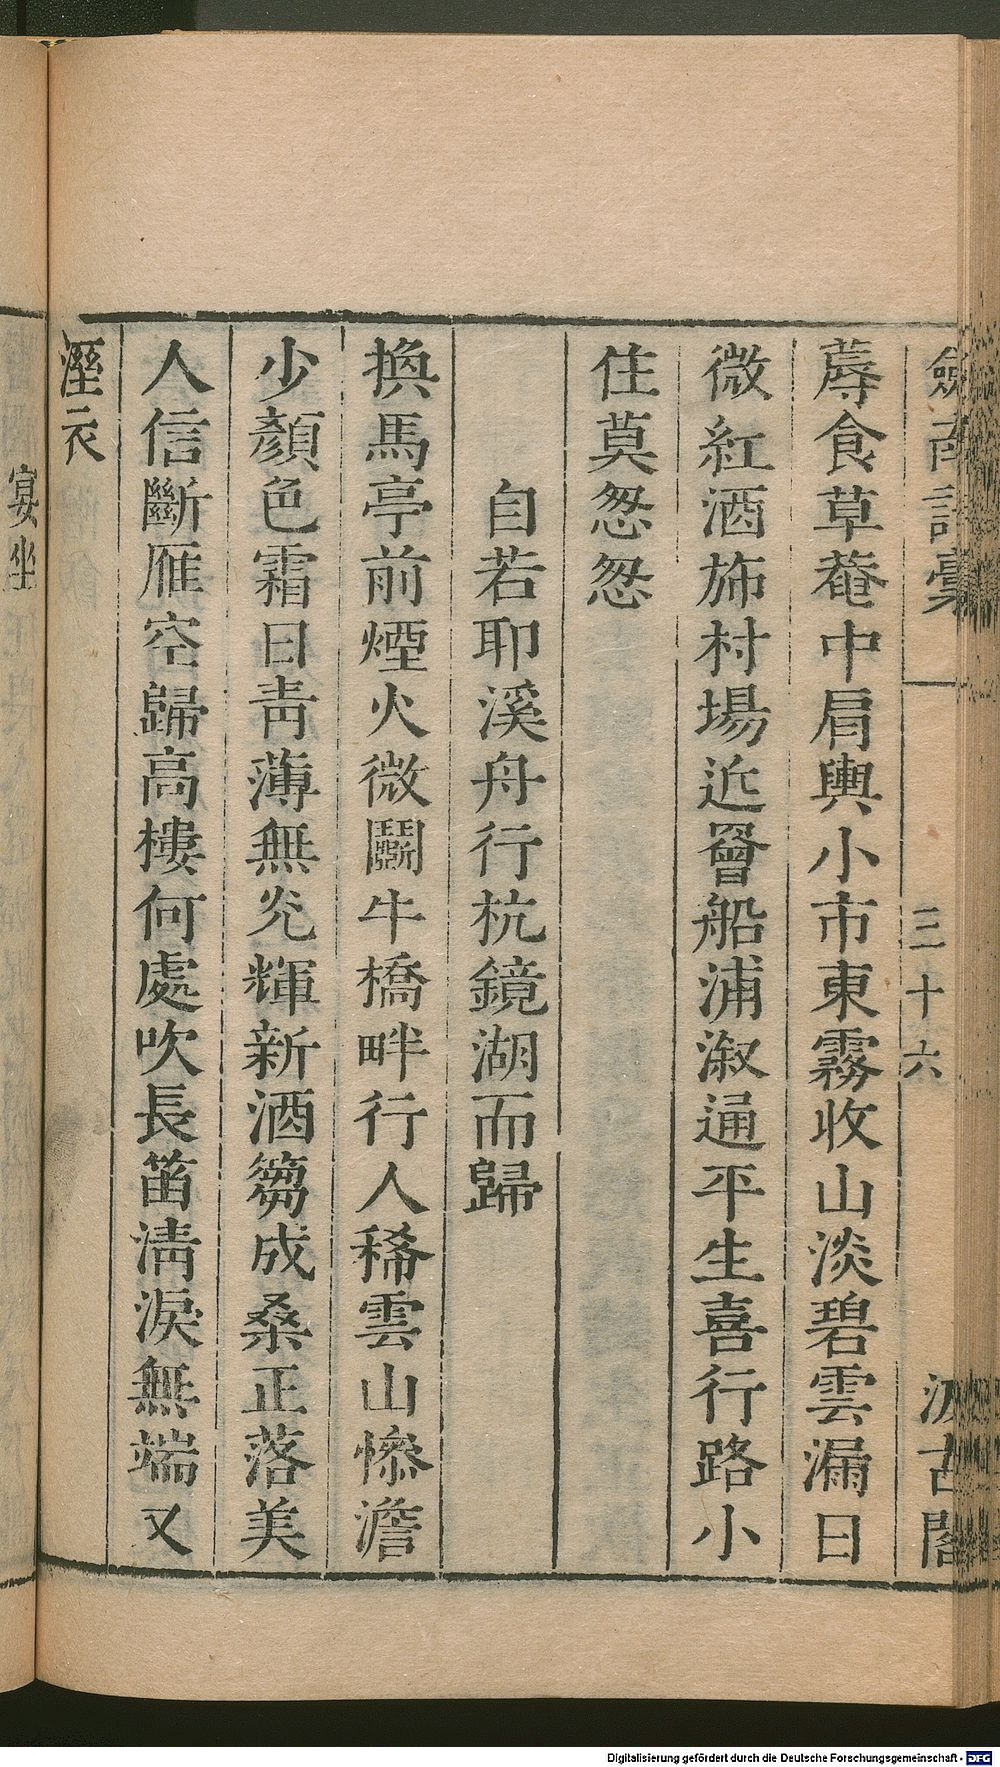 劒南詩稾 三十六 汲古閣
蓐食草菴中肩輿小市東霧收山淡碧雲漏日
微紅酒斾村場近罾船浦溆通平生喜行路小
住莫怱怱
自若耶溪舟行杭鏡湖而歸
換馬亭前煙火微鬭牛橋畔行人稀雲山慘澹
少顏色霜日靑薄無光輝新酒篘成桑正落美
人信斷雁空歸高樓何處吹長笛淸淚無端又
溼衣
宴坐
Digitalisierung gefördert durch die Deutsche Forschungsgemeinschaft - DFG